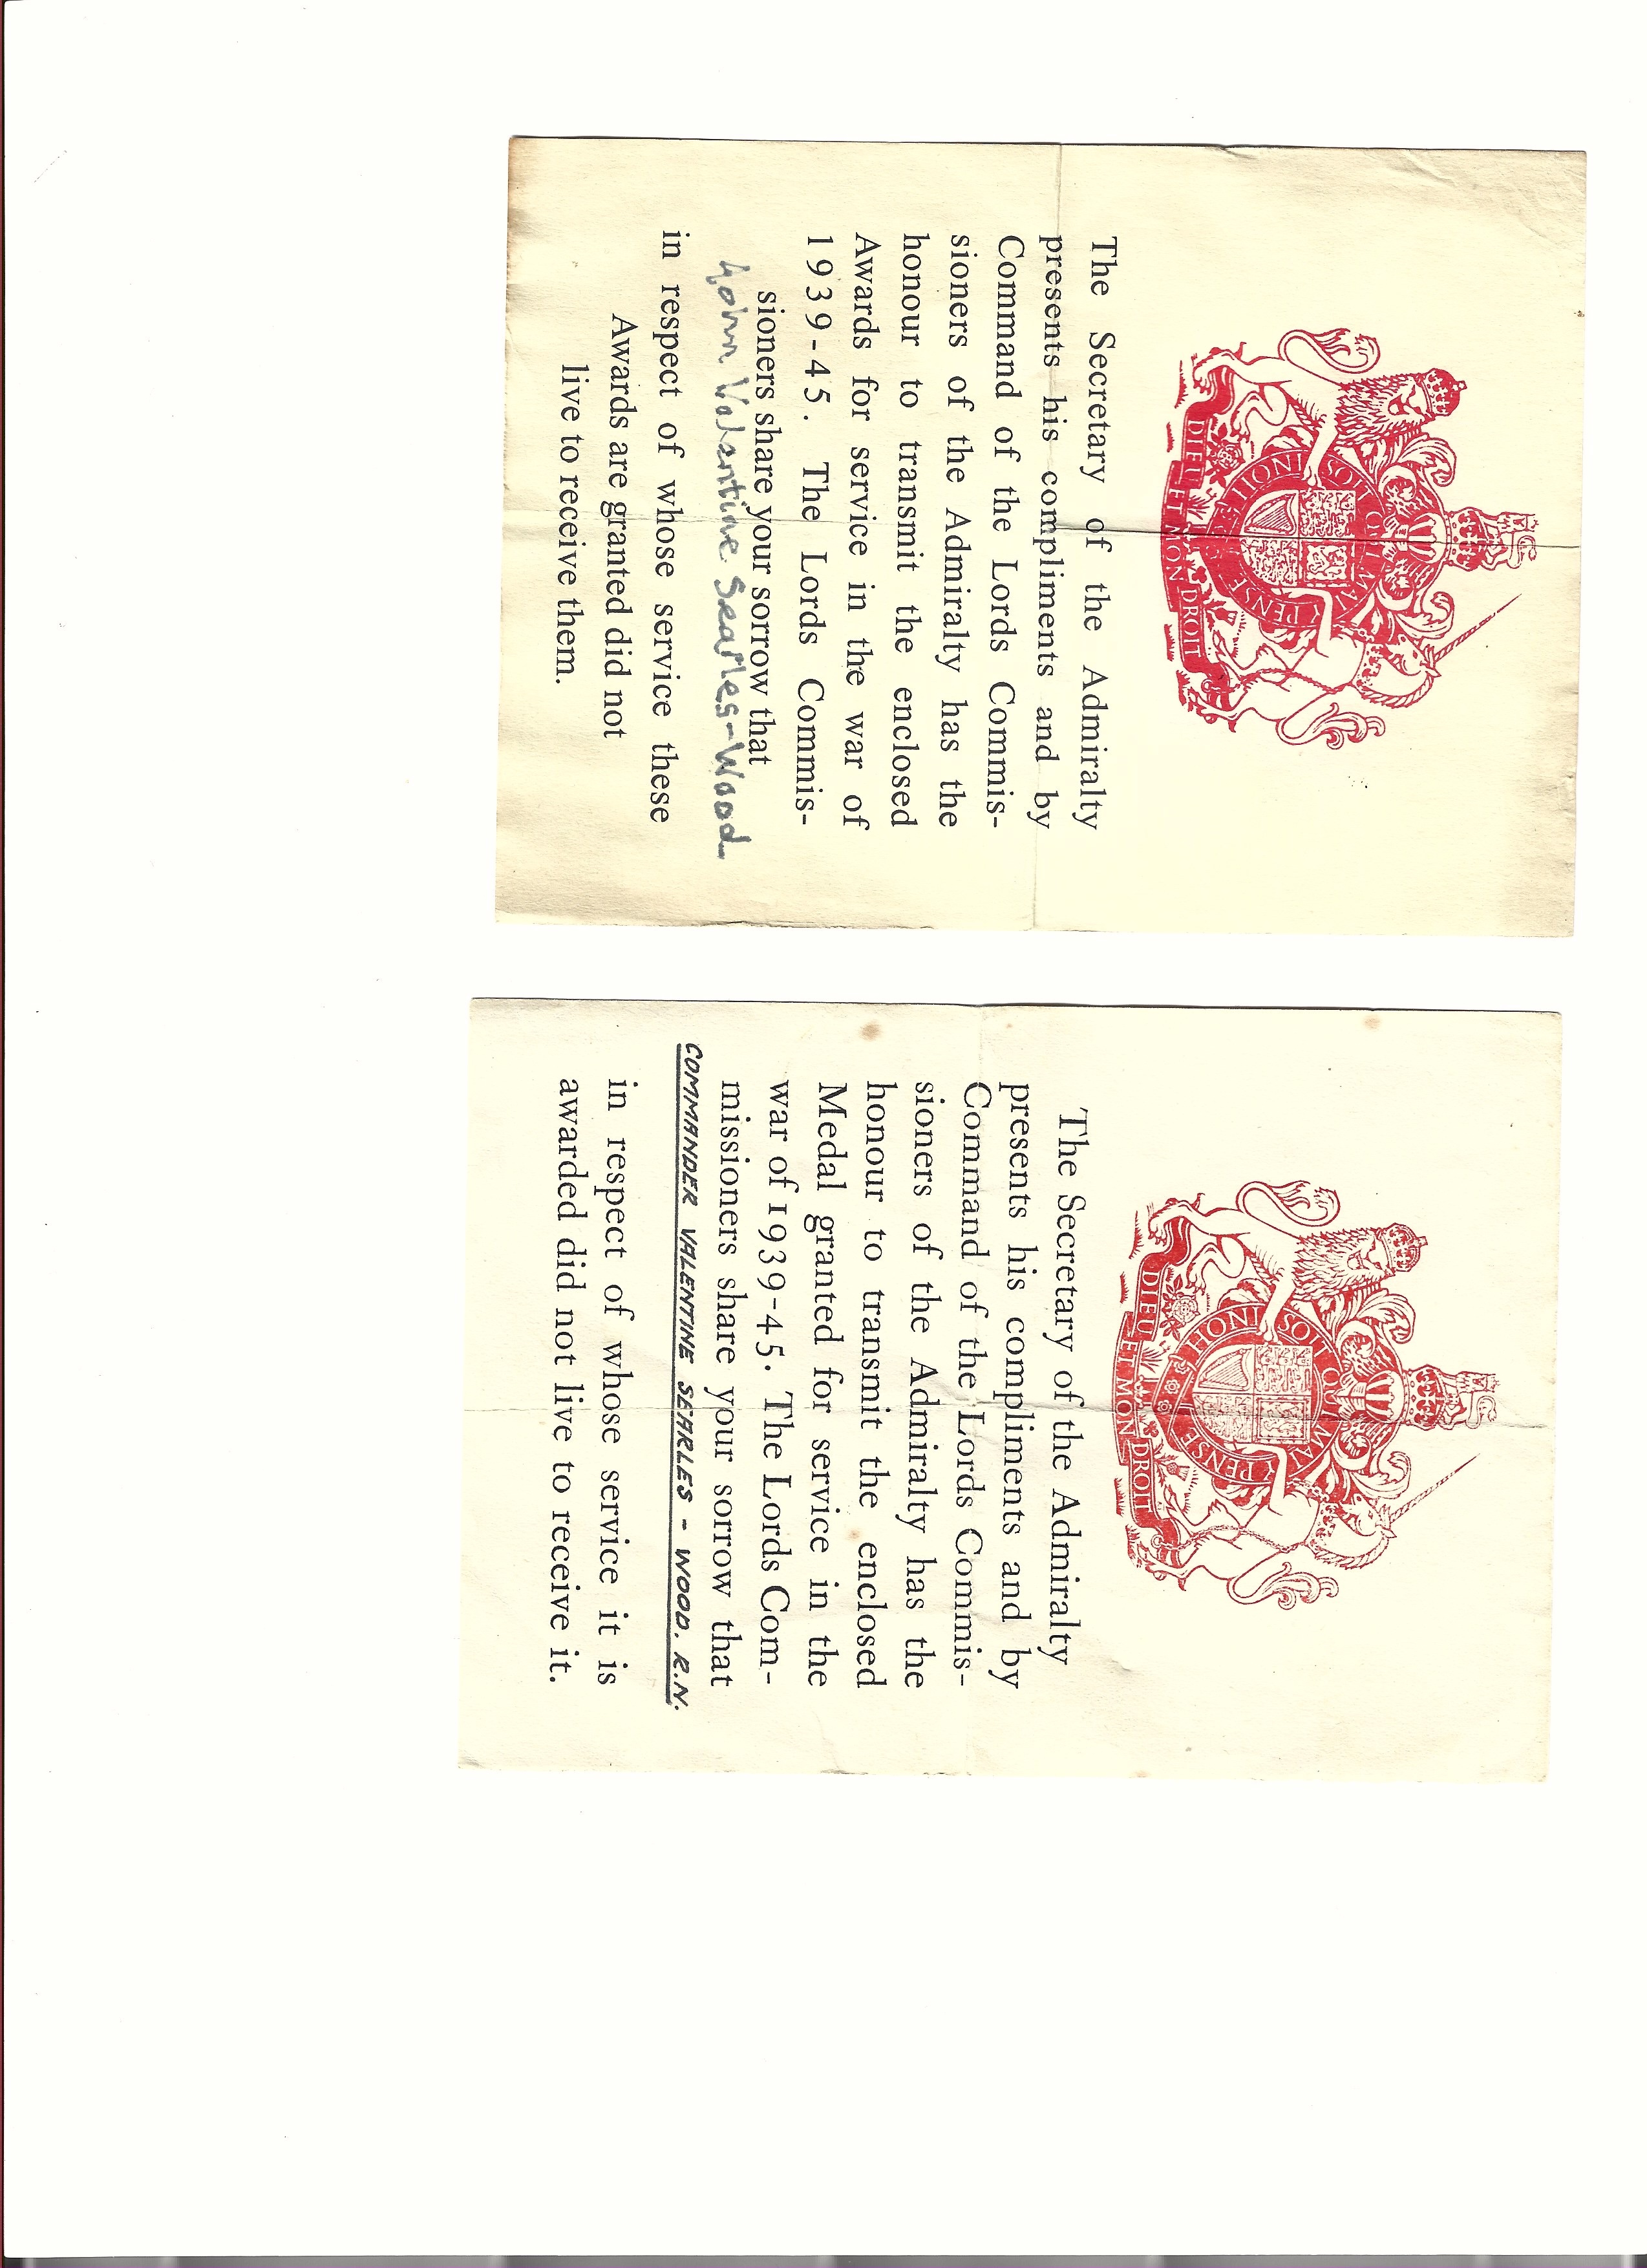 HONI SOIT Q MAL Y PENSE
DIEU ET MON DROIT
The Secretary of the Admiralty
presents his compliments and by
Command of the Lords Commis-
sioners of the Admiralty has the
honour to transmit the enclosed
Awards for service in the war of
1939-45. The Lords Commis-
sioners share your sorrow that
John Valentine Searles-Wood
in respect of whose service these
Awards are granted did not
live to receive them.
HONI SOIT Q MAL Y PENSE
DIEU ET MON DROIT
The Secretary of the Admiralty
presents his compliments and by
Command of the Lords Commis-
sioners of the Admiralty has the
honour to transmit the enclosed
Medal granted for service in the
war of 1939-45. The Lords Com-
missioners share your sorrow that
COMMANDER VALENTINE SEARLES - WOOD. R.N.
in respect of whose service it is
awarded did not live to receive it.